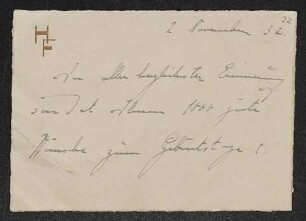 HF
22
2 November 32.
In aller herzlichster Erinnerung
sendet Ihnen 1000 gute
Wünsche zum Geburtstage!